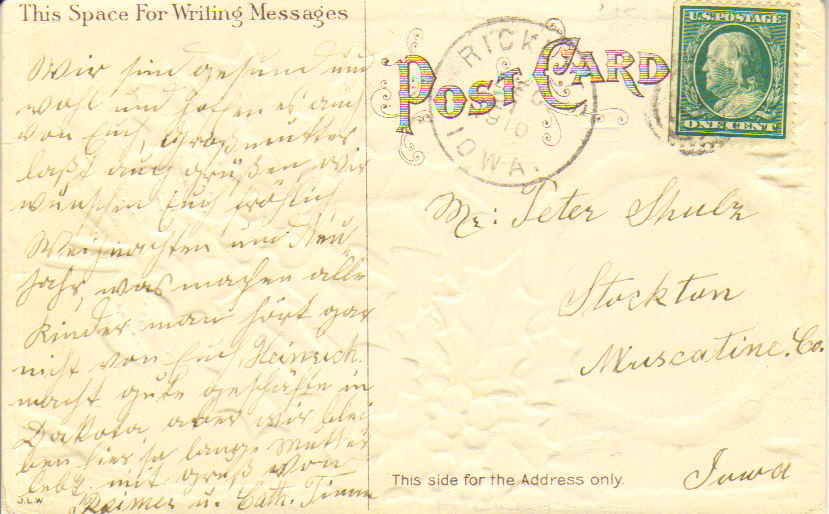 This Space For Writing Messages
Wir sind gesund und
wohl und hoffen es auch
von Euch, Großmutter
laßt auch grüßen, wir
wünschen Euch fröhlich
Weihnachten und Neu
Jahr, was machen alle
Kinder man hört gar
nicht von Euch Heinrich
macht gute geschäfte in
Dakota, aber wir blei
ben hier so lange Mutter
lebt, mit gruß von
Reimer u. Cath. Timm
J.L.W.
POST CARD
RICK
1910
IOWA.
U.S. POSTAGE
ONE CENT
Mr: Peter Shulz
Stockton
Muscatine. Co.
Iowa
This side for the Address only.